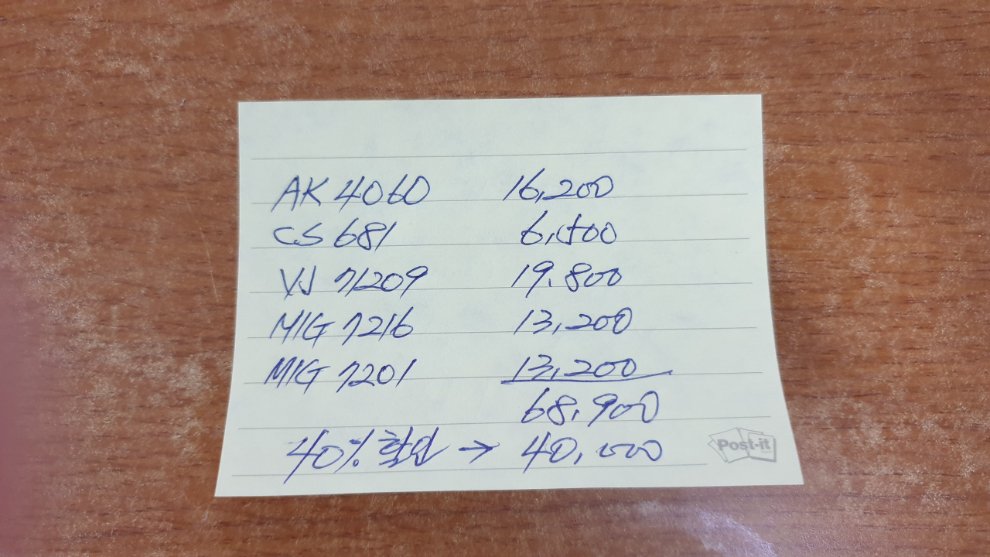 AK 4060 16,200
CS 681 6,500
VJ 71209 19.800
MIG 7216 13,200
MIG 7201 13,200
68,900
40% 할인 → 40,000
Post-it